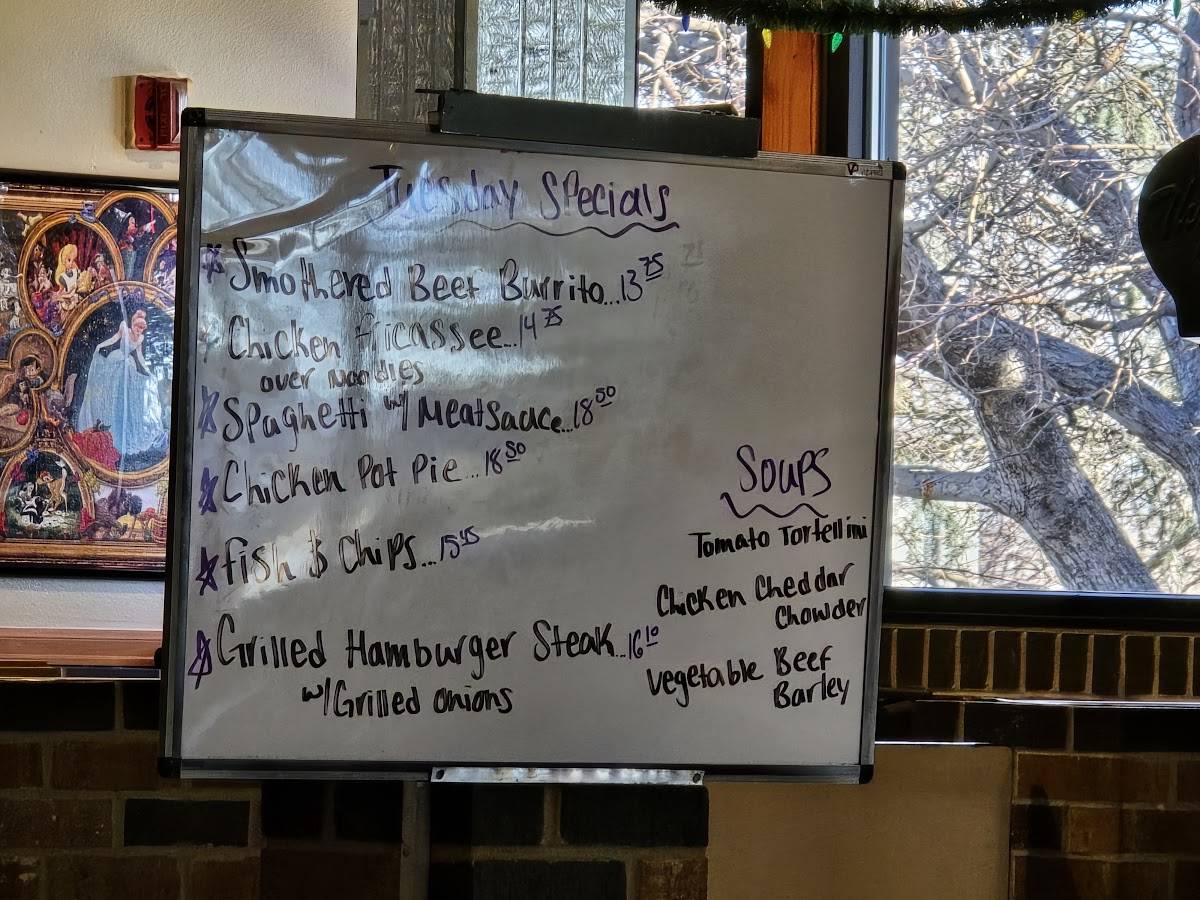 Tuesday Specials
Smothered Beef Burrito...13 75
Chicken fricassee...14 75
over Noodles
Spaghetti w/ Meatsauce...18 50
Chicken Pot Pie...18 50
fish & Chips...15 45
Grilled Hamburger Steak...16 10
w/ Grilled Onions
Soups
Tomato Tortellini
Chicken Cheddar
Chowder
Vegetable Beef
Barley